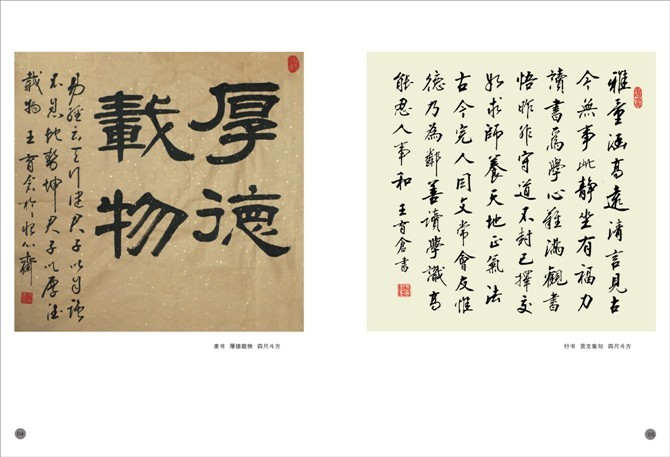 厚德
載物
易經云天行健君子以自强
不息地勢坤君子以厚德
載物 王育倉於恒心齋
隶书 厚德載物 四尺斗方
04
雅量涵高遠清言見古
今無事此靜坐有福力
讀書為學心難滿觀書
悟昨非守道不封己擇交
如求師養天地正氣法
古今完人因文常會友惟
德乃為鄰善讀學識高
能忍人事和 王育倉書
行书 贤文集句 四尺斗方
05